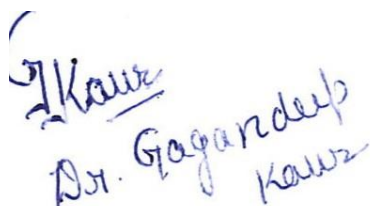 GKaur
Dr. Gagandeep
Kaur